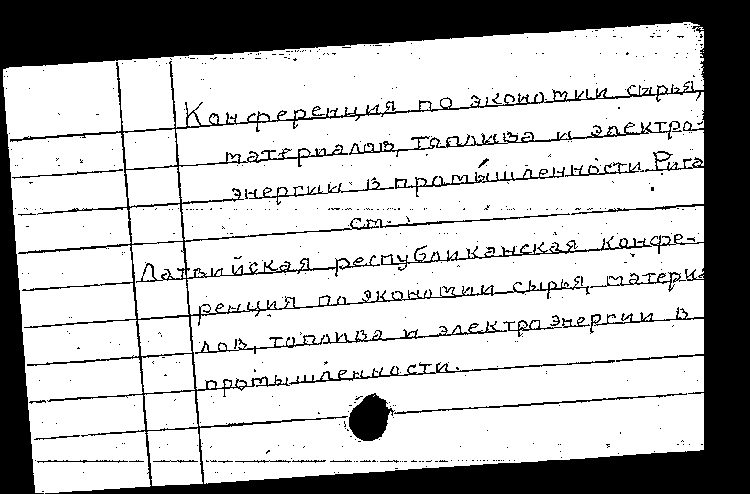 Конференция по экономии сырья,
материалов, топлива и электро-
энергии в промышленности. Рига
см.:
Латвийская республиканская конфе-
ренция по экономии сырья, материа
лов, топлива и электроэнергии в
промышленности.